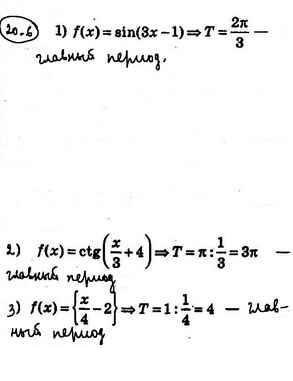 20.6 1) f(x) = sin(3x − 1) ⇒ T = 2π/3 —
главный период.
2) f(x) = ctg(x/3 + 4) ⇒ T = π : 1/3 = 3π —
главный период
3) f(x) = {x/4 − 2} ⇒ T = 1 : 1/4 = 4 — глав-
ный период